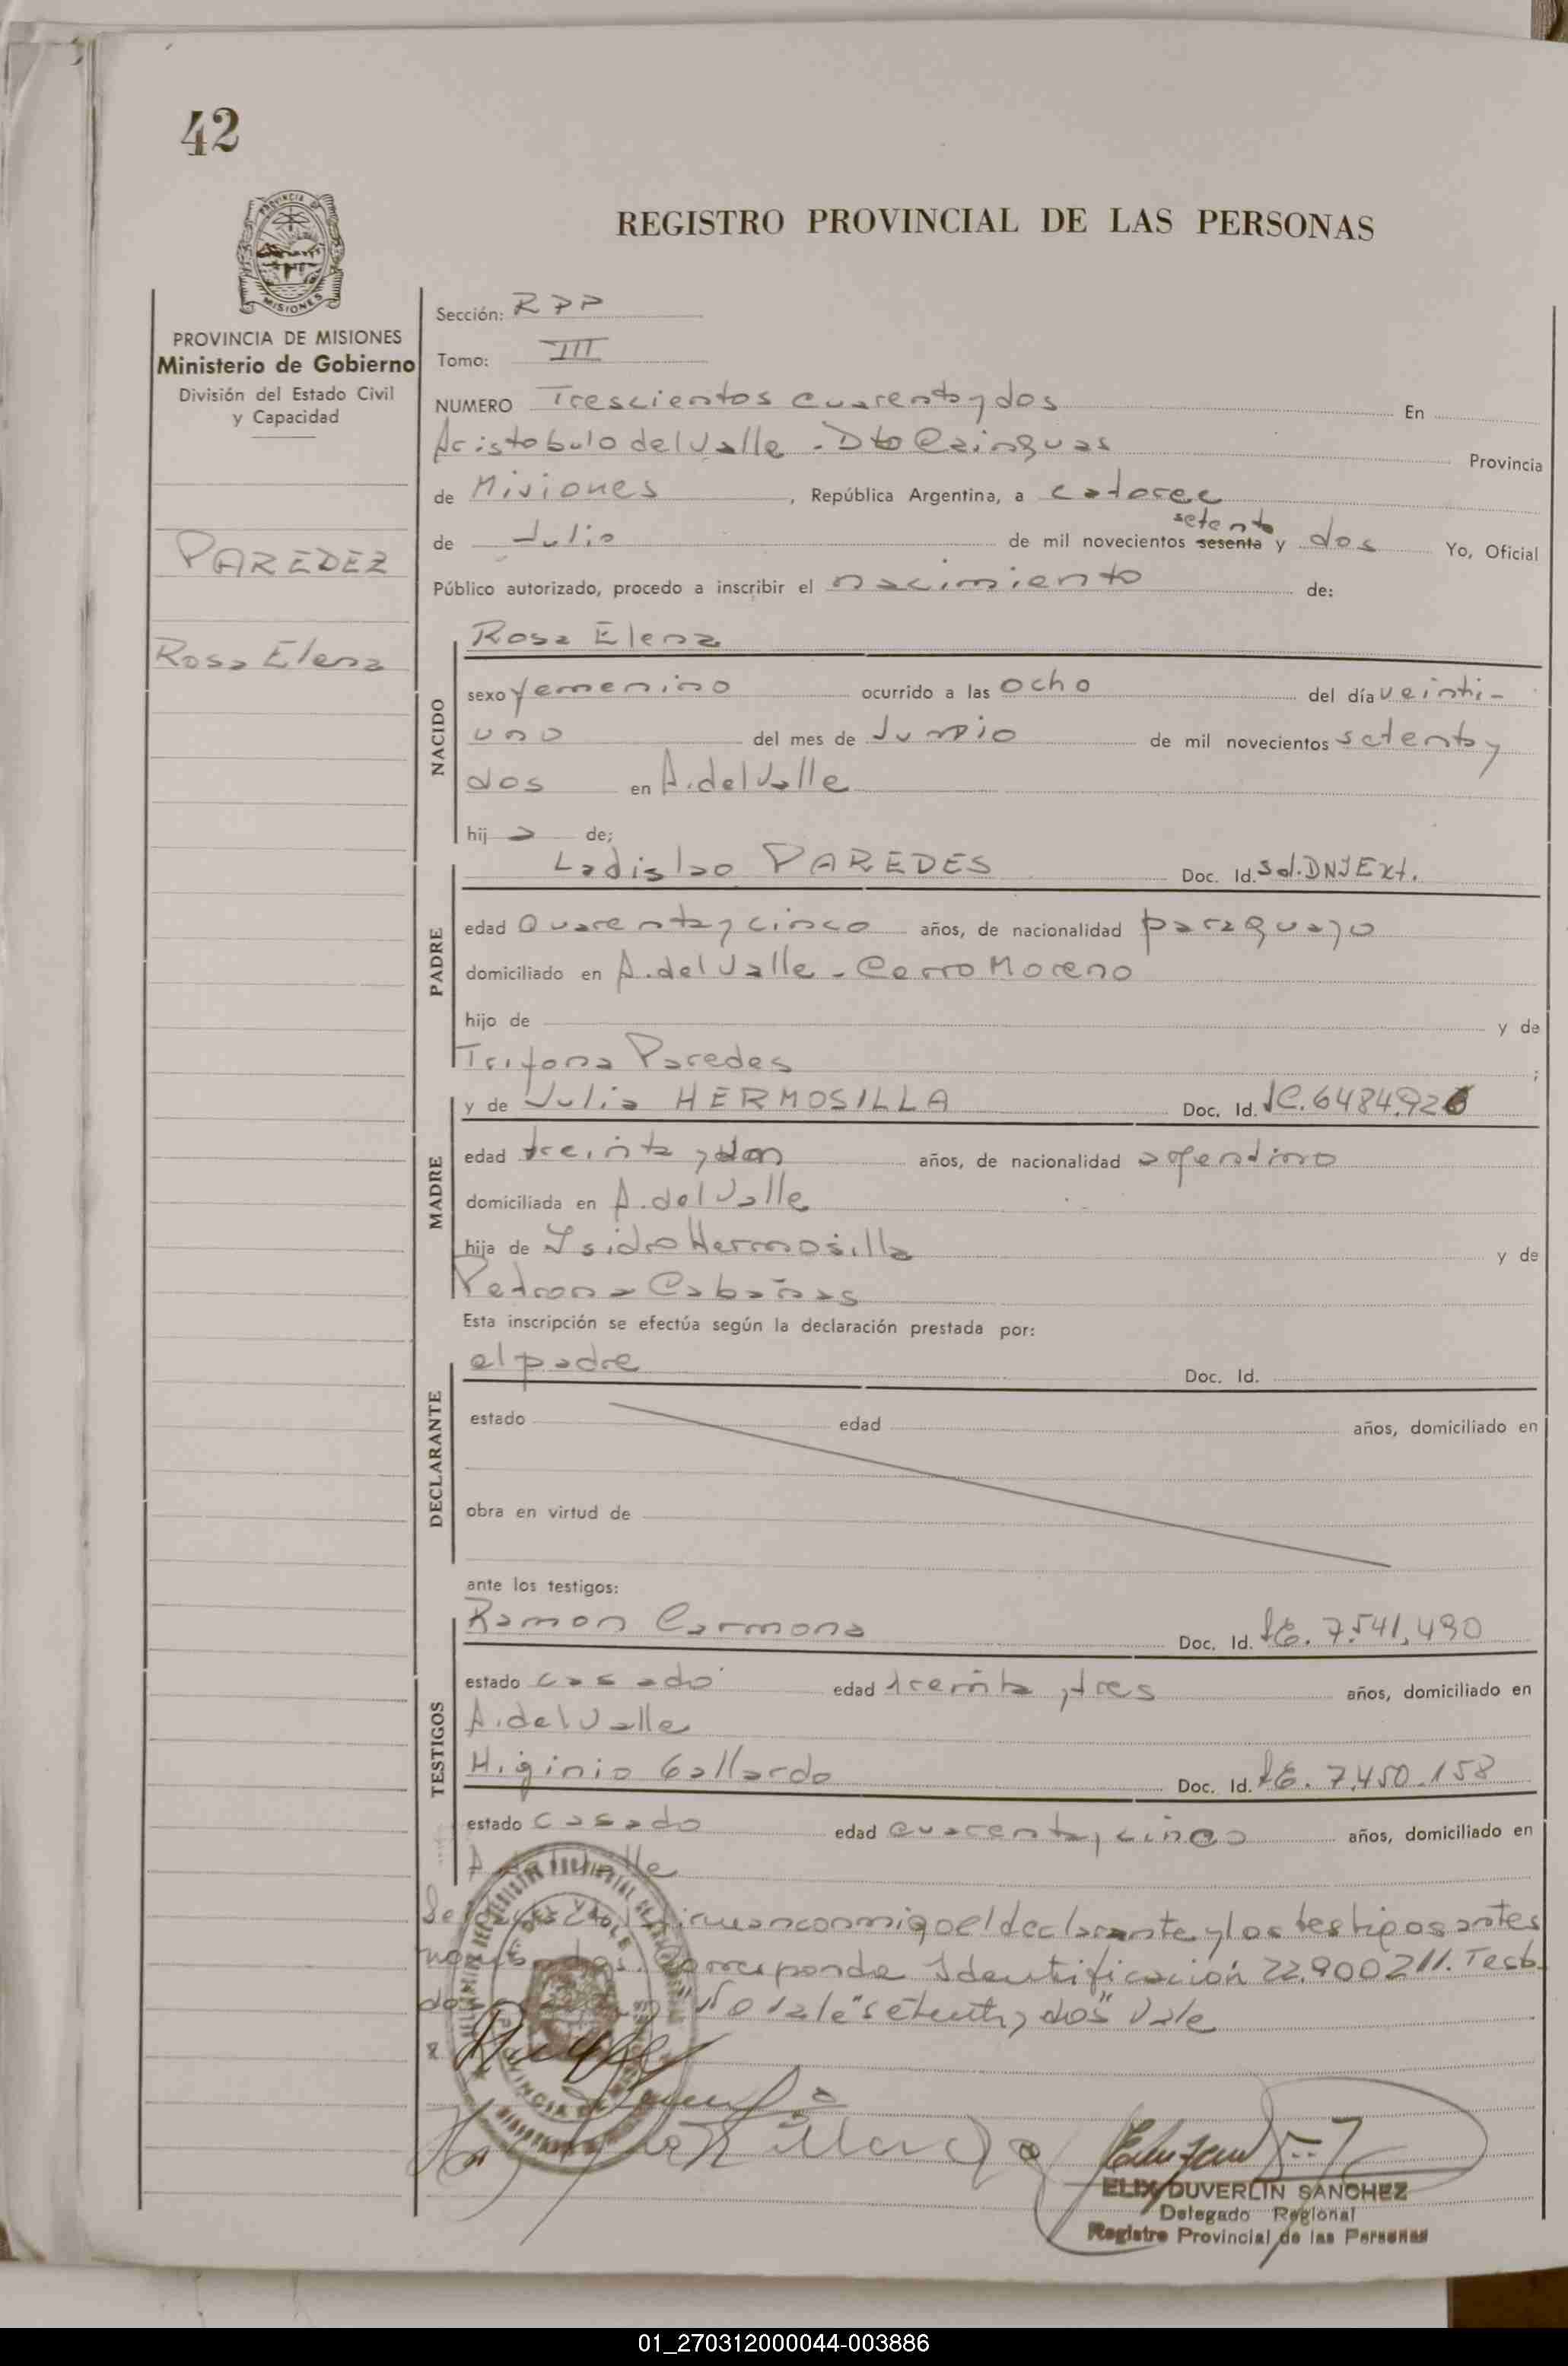 42
REGISTRO PROVINCIAL DE LAS PERSONAS
PROVINCIA DE MISIONES
Ministerio de Gobierno
División del Estado Civil
y Capacidad
PAREDEZ
Rosa Elena
Sección: RPP
Tomo: III
NUMERO Trescientos cuarenta y dos En
Aristobulo del Valle - Dto Cainguas Provincia
de Misiones, República Argentina, a catorce
setenta
de Julio de mil novecientos sesenta y dos Yo, Oficial
Público autorizado, procedo a inscribir el nacimiento de:
NACIDO
Rosa Elena
sexo femenino ocurrido a las ocho del día veinti-
uno del mes de Junio de mil novecientos setenta y
dos en A. del Valle
hij a de;
PADRE
Ladislao PAREDES Doc. Id. Sol. DNI Ext.
edad Cuarenta y cinco años, de nacionalidad paraguayo
domiciliado en A. del Valle - Cerro Moreno
hijo de y de
Trifona Paredes ;
MADRE
y de Julia HERMOSILLA Doc. Id. LC. 6484.926
edad treinta y dos años, de nacionalidad argentina
domiciliada en A. del Valle
hija de Isidro Hermosilla y de
Petrona Cabañas
Esta inscripción se efectúa según la declaración prestada por:
DECLARANTE
el padre Doc. Id.
estado edad años, domiciliado en
obra en virtud de
ante los testigos:
TESTIGOS
Ramon Carmona Doc. Id. LE. 7.541.490
estado casado edad treinta y tres años, domiciliado en
A. del Valle
Higinio Gallardo Doc. Id. LE. 7.450.158
estado casado edad cuarenta y cinco años, domiciliado en
A. del Valle
firman conmigo el declarante y los testigos antes
nombrados. Corresponde Identificación 22.900211. Testa-
do "No vale" "setenta y dos" Vale
ELIX DUVERLIN SANCHEZ
Delegado Regional
Registro Provincial de las Personas
01_270312000044-003886